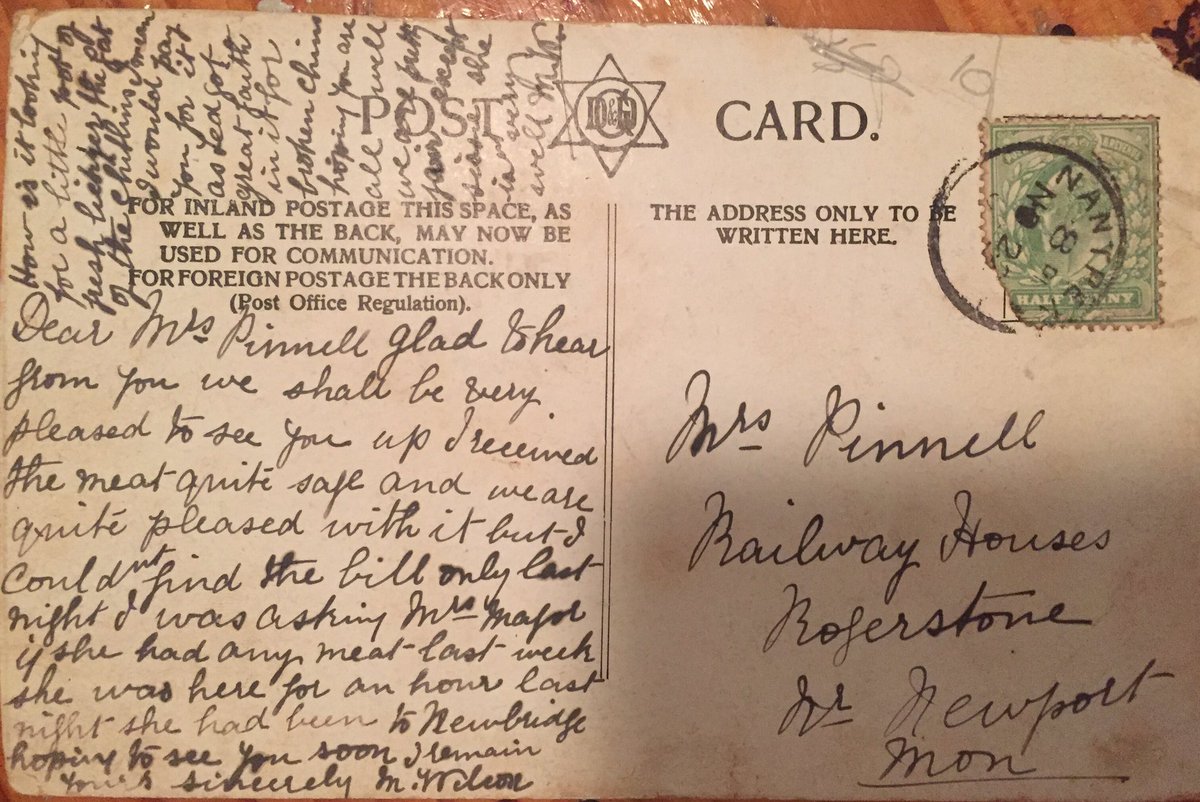 POST CARD.
D&G
10
FOR INLAND POSTAGE THIS SPACE, AS
WELL AS THE BACK, MAY NOW BE
USED FOR COMMUNICATION.
FOR FOREIGN POSTAGE THE BACK ONLY
(Post Office Regulation).
THE ADDRESS ONLY TO BE
WRITTEN HERE.
HALFPENNY
NANTR
NO 2
8
Dear Mrs Pinnell Glad to hear
from you we shall be very
pleased to see you up I received
the meat quite safe and we are
quite pleased with it but I
couldnt find the bill only last
night I was asking Mrs Major
if she had any meat last week
she was here for an hour last
night she had been to Newbridge
hoping to see you soon I remain
yours sincerely M. Wilcox
How is it looking
for a little
fresh the fat
of the I mean
I would pay
you for it
as got
great faith
in it for
broken
hoping you are
all well
we are pretty
except
she
is very
well
Mrs Pinnell
Railway Houses
Rogerstone
Nr Newport
Mon